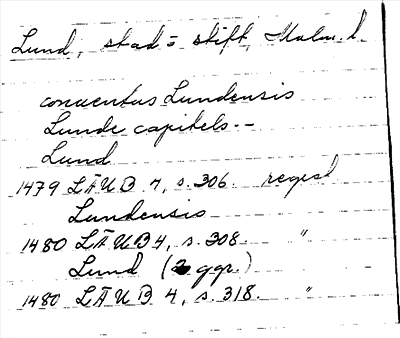 Lund, stad = stift, Malm. l.
conventus Lundensis
Lunde capitels--
Lund
1479 LÄUB 4, s. 306. regist
Lundensis
1480 LÄUB 4, s. 308. "
Lund (2 ggr.)
1480 LÄUB 4, s. 318. "